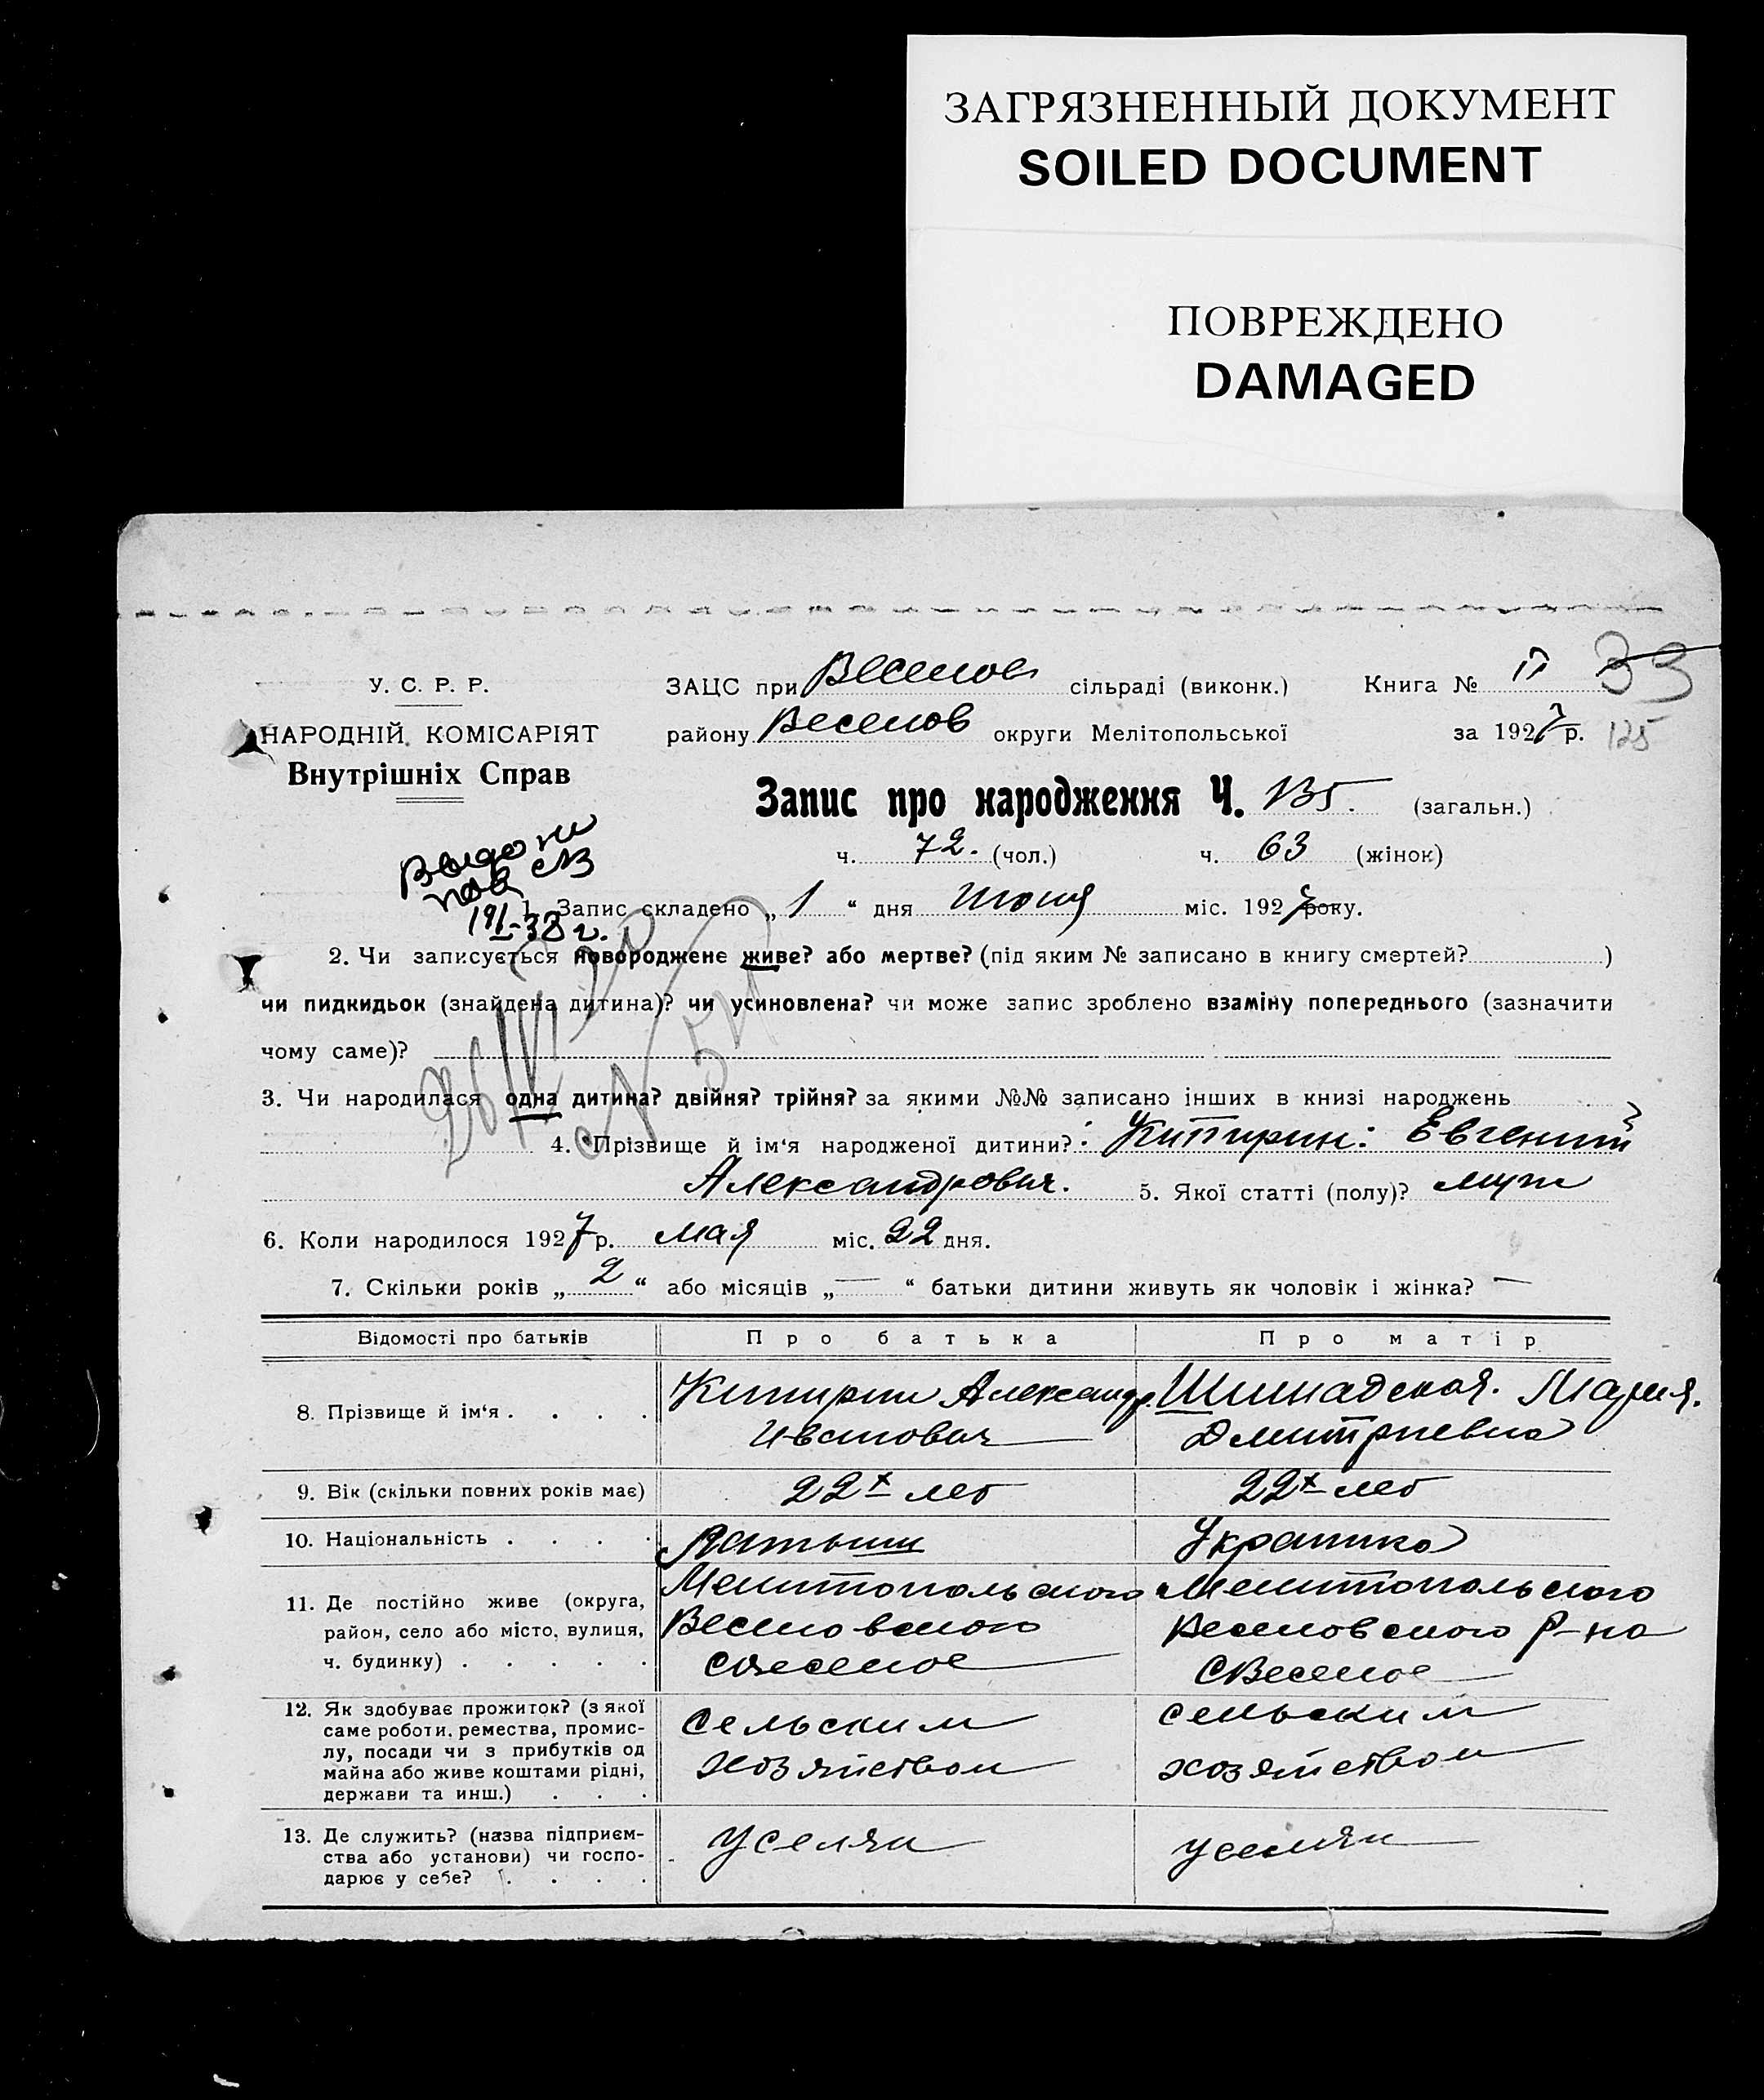 ЗАГРЯЗНЕННЫЙ ДОКУМЕНТ
SOILED DOCUMENT
ПОВРЕЖДЕНО
DAMAGED
У. С. Р. Р.
НАРОДНІЙ КОМІСАРІЯТ
Внутрішніх Справ
ЗАЦС при Веселов сільраді (виконк.) Книга № II 33
району Веселов округи Мелітопольської за 1927 р. 125
Запис про народження Ч. 135. (загальн.)
ч. 72. (чол.) ч. 63 (жінок)
1. Запис складено „ 1 “ дня Июня міс. 1927 року.
2. Чи записується новороджене живе? або мертве? (під яким № записано в книгу смертей? )
чи пидкидьок (знайдена дитина)? чи усиновлена? чи може запис зроблено взаміну попереднього (зазначити
чому саме)?
3. Чи народилася одна дитина? двійня? трійня? за якими №№ записано інших в книзі народжень
4. Прізвище й ім‘я народженої дитини? : Евгений
Александрович. 5. Якої статті (полу)? муж
6. Коли народилося 1927 р. мая міс. 22 дня.
7. Скільки років „ 2 “ або місяців „ — “ батьки дитини живуть як чоловік і жінка? —
Відомості про батьків Про батька Про матір
8. Прізвище й ім‘я . . . . Александр. Мария.
Иванович Дмитриевна
9. Вік (скільки повних років має) 22х лет 22х лет
10. Національність . . . . Латыш Украинка
11. Де постійно живе (округа, Мелитопольского Мелитопольского
район, село або місто, вулиця, Веселовского Веселовского Р-на
ч. будинку) . . . . . с Веселое с Веселое
12. Як здобуває прожиток? (з якої сельским сельским
саме роботи, ремества, промис-
лу, посади чи з прибутків од хозяйством хозяйством
майна або живе коштами рідні,
держави та инш.) . . .
13. Де служить? (назва підприєм- У селян У селян
ства або установи) чи госпо-
дарює у себе? . . . .